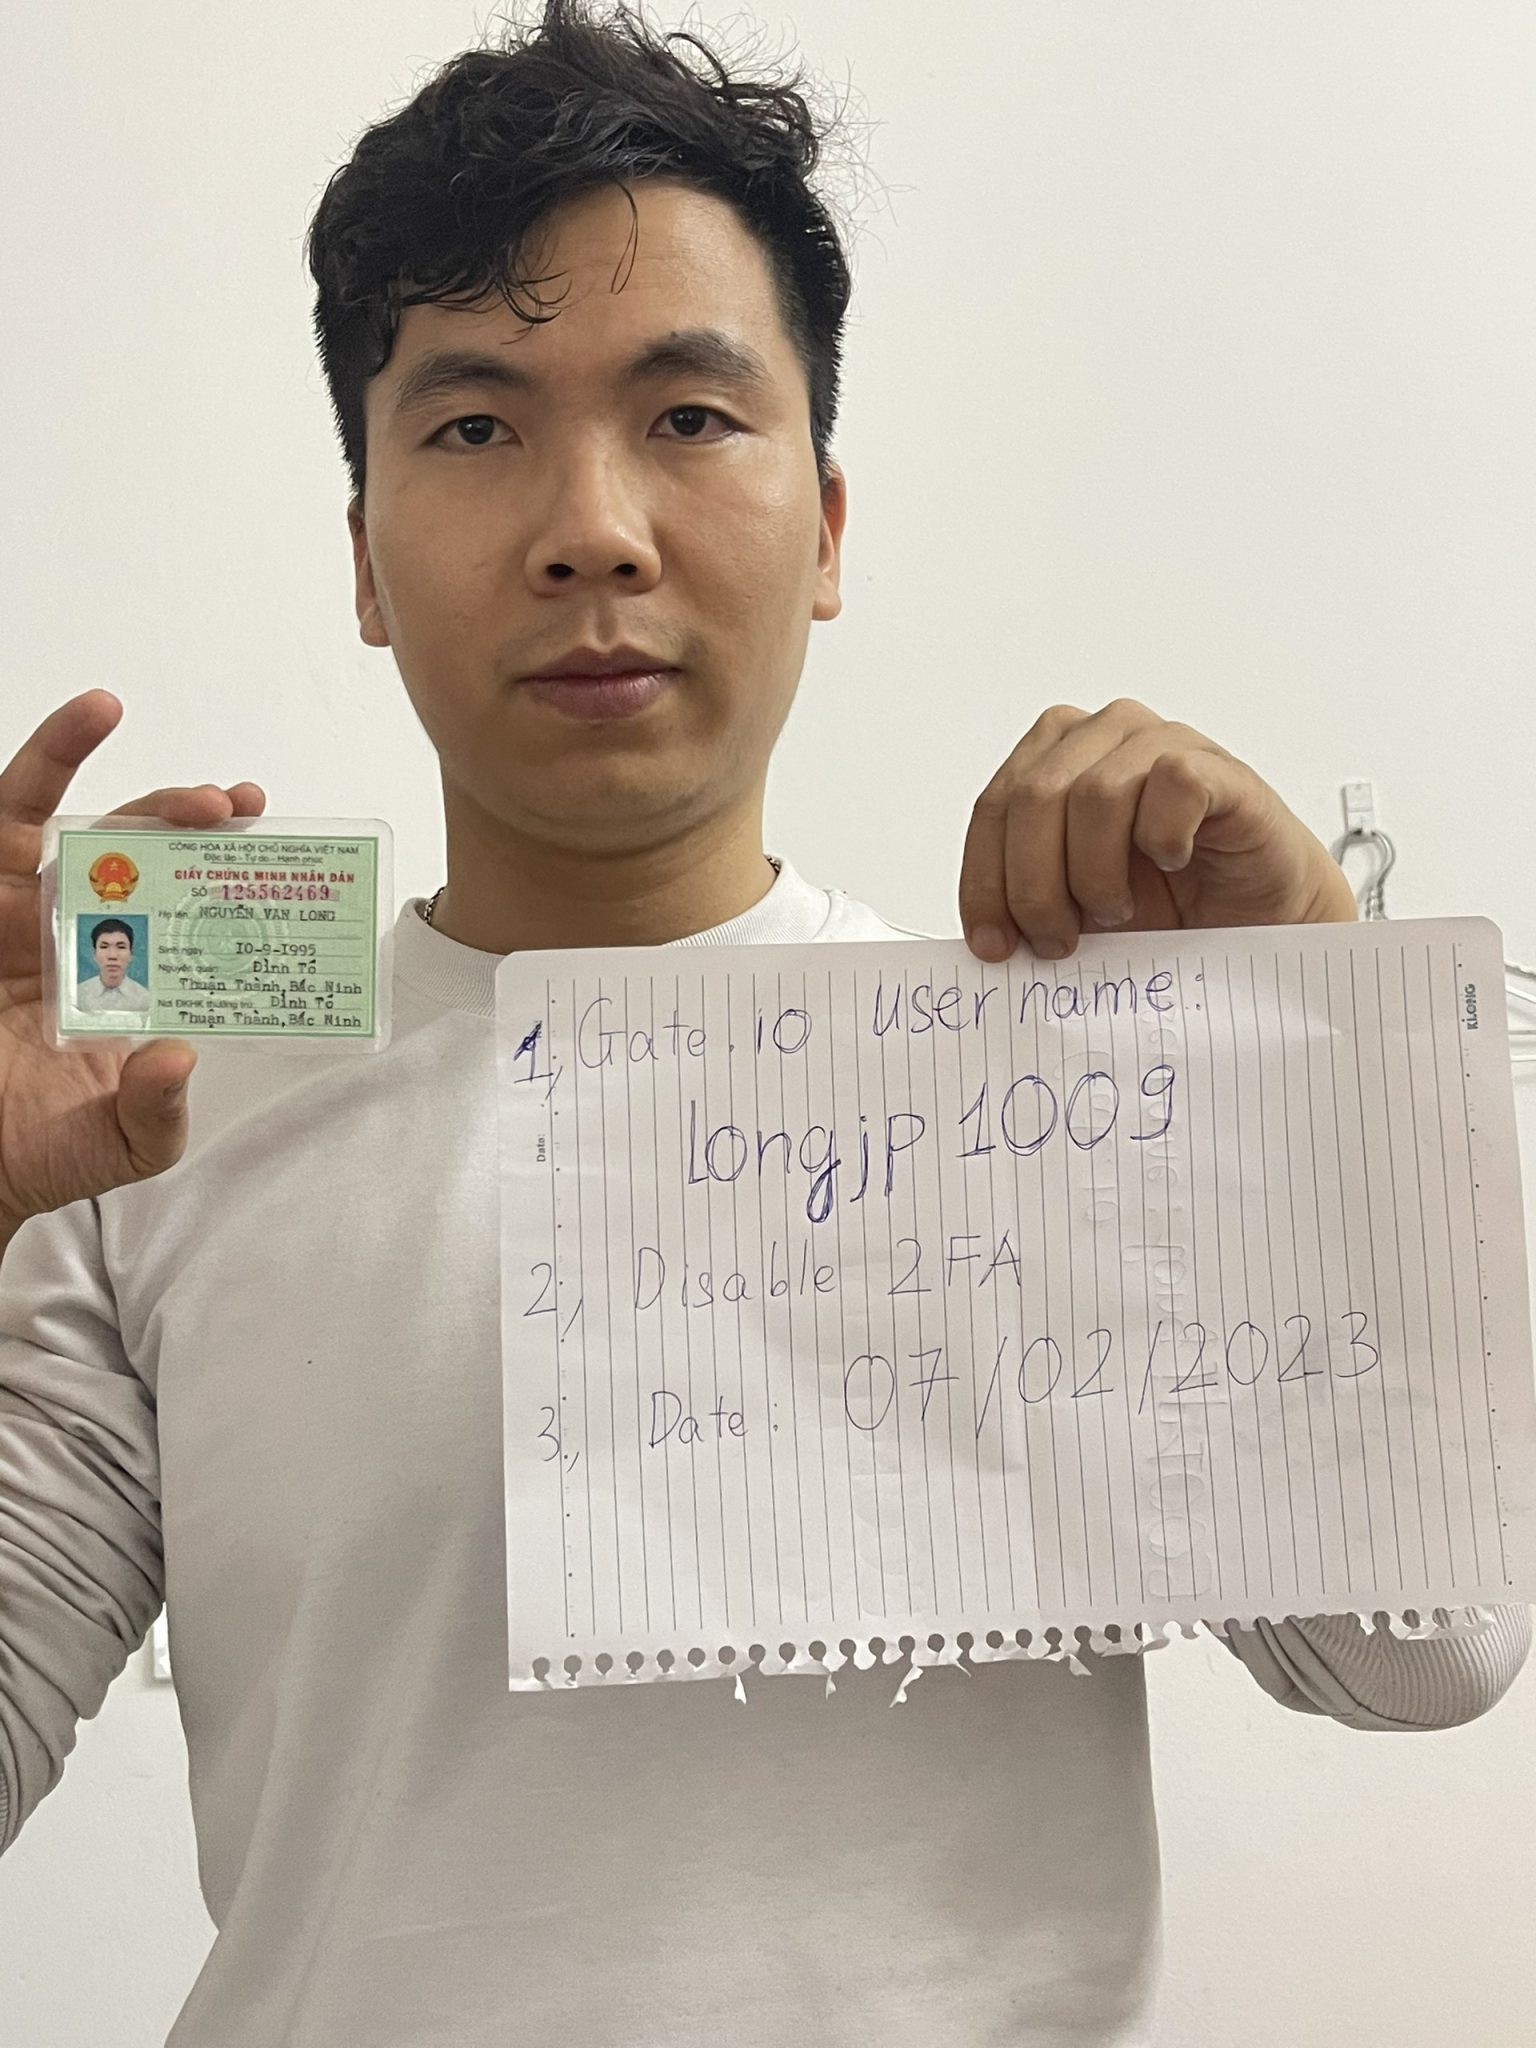 CỘNG HÒA XÃ HỘI CHỦ NGHĨA VIỆT NAM
Độc lập - Tự do - Hạnh phúc
GIẤY CHỨNG MINH NHÂN DÂN
SỐ 125562469
Họ tên NGUYỄN VĂN LONG
Sinh ngày 10-9-1995
Nguyên quán Đình Tổ
Thuận Thành, Bắc Ninh
Nơi ĐKHK thường trú Đình Tổ
Thuận Thành, Bắc Ninh
KLONG
Date:
1, Gate.io username:
longjp1009
2, Disable 2FA
3, Date: 07/02/2023